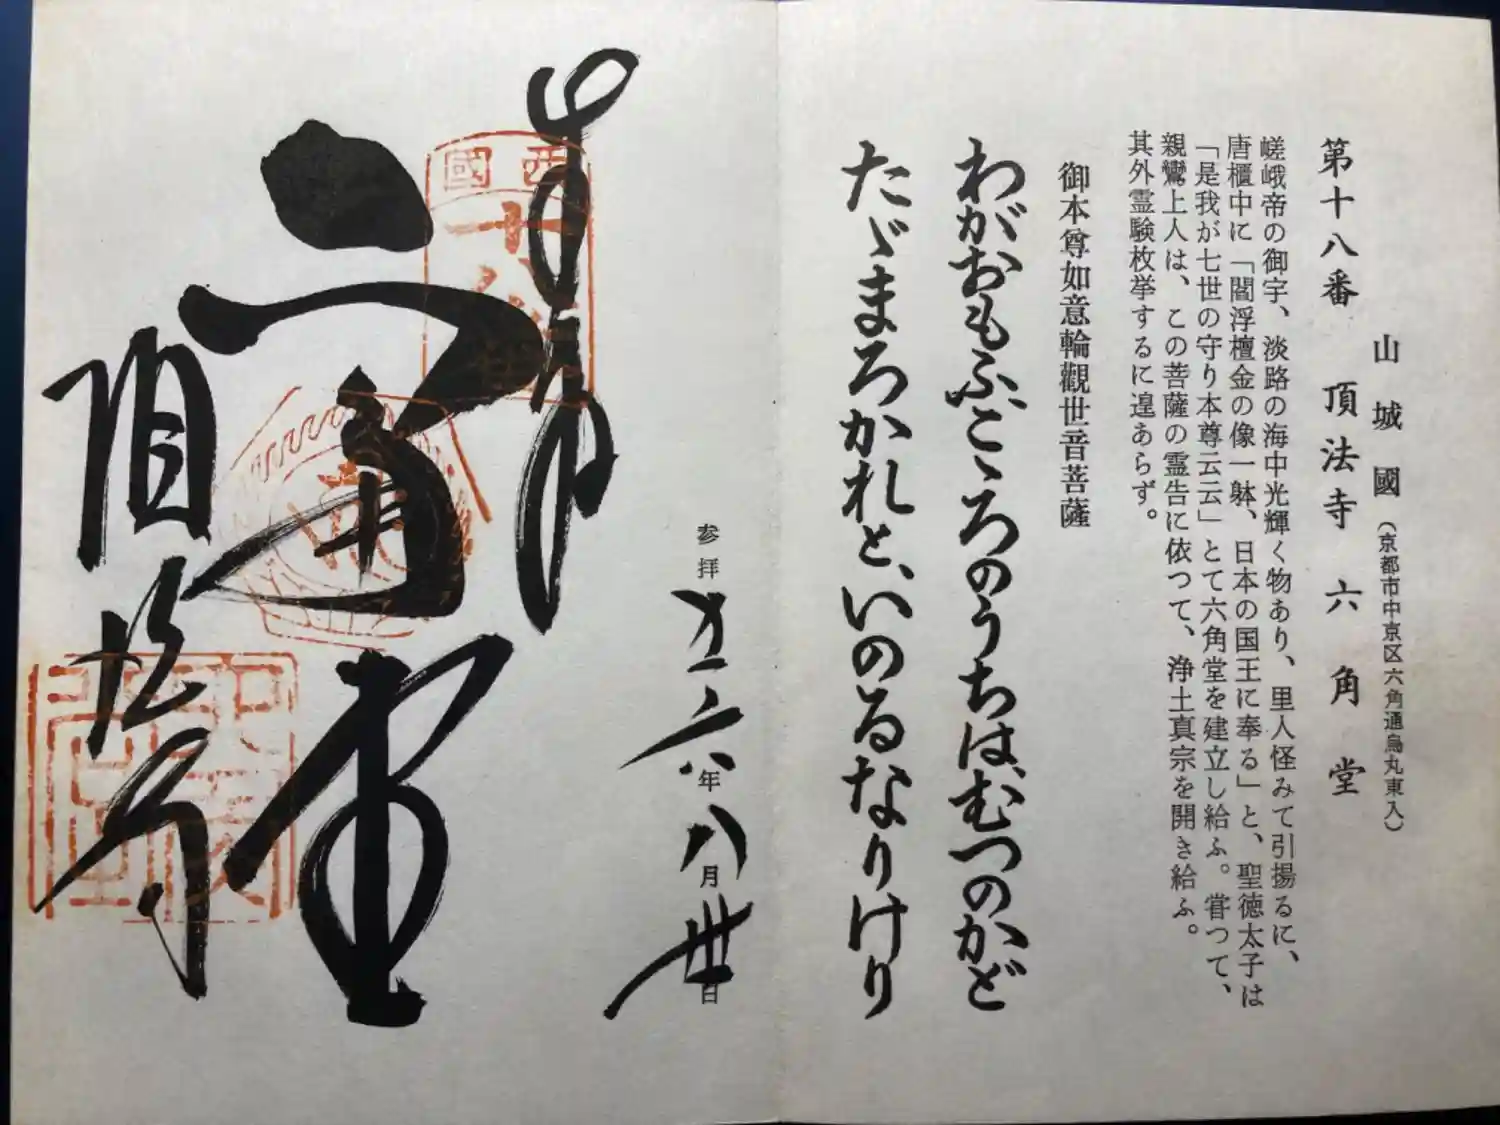 山城國(京都市中京区六角通烏丸東入)
第十八番 頂法寺 六角堂
嵯峨帝の御宇、淡路の海中光輝く物あり、里人怪みて引揚るに、
唐櫃中に「閻浮檀金の像一躰、日本の国王に奉る」と、聖徳太子は
「是我が七世の守り本尊云云」とて六角堂を建立し給ふ。嘗つて、
親鸞上人は、この菩薩の霊告に依つて、浄土真宗を開き給ふ。
其外霊験枚挙するに遑あらず。
御本尊如意輪觀世音菩薩
わがおもふ、こゝろのうちは、むつのかど
たゞまろかれと、いのるなりけり
参拝 年八月卅日
西國
十八番
六角堂
頂法寺